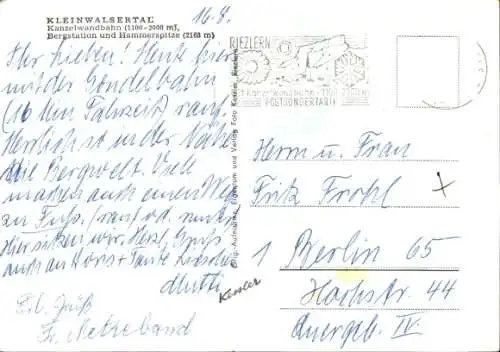 KLEINWALSERTAL
Kanzelwandbahn (1100-2000 m),
Bergstation und Hammerspitze (2163 m)
16.8.
Ihr Lieben! Heute hier
mit der Gondelbahn
(16 Min Fahrzeit) rauf.
Herrlich ist in der Nähe
die Bergwelt. Viele
machen auch einen Weg
zu Fuß. rauf o.d. runter
Hier sitzen wir. Herzl. Grüße
auch an Hans + Tante
Mutti
Kessler
Frl. Grüß
Fr. Netzeband
RIEZLERN
Kanzelwandbahn 1100-2000 m
POSTSONDERTARIF
Orig.-Aufnahme, Eigentum und Verlag Foto Kessler, Riezlern
Herrn u. Frau
Fritz Frohl
1 Berlin 65
Hochstr. 44
Quergeb. IV.